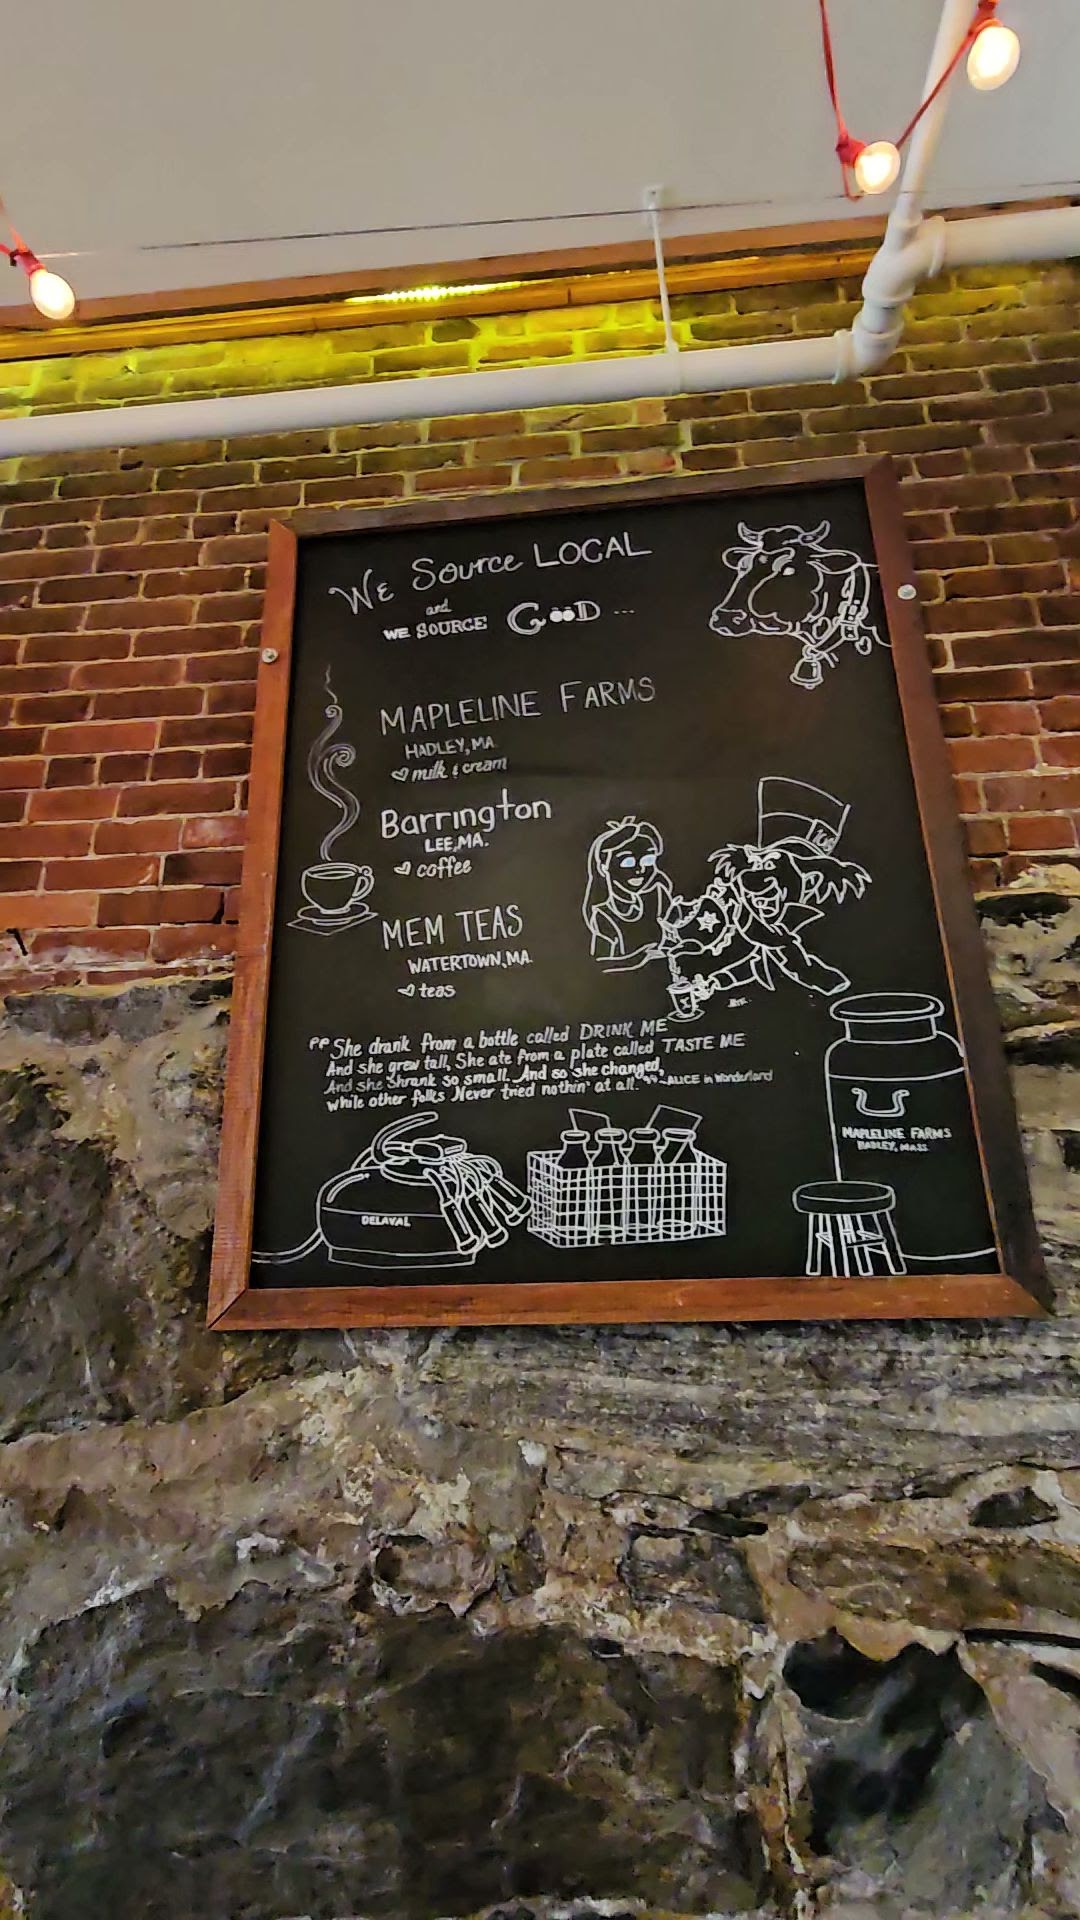 We Source LOCAL
and
WE SOURCE GööD ...
MAPLELINE FARMS
HADLEY, MA
♡ milk & cream
Barrington
LEE, MA.
♡ coffee
MEM TEAS
WATERTOWN, MA.
♡ teas
10/6
"She drank from a bottle called DRINK ME
And she grew tall, She ate from a plate called TASTE ME
And she shrank so small. And so she changed,
while other folks Never tried nothin' at all." ~ ALICE in Wonderland
MAPLELINE FARMS
HADLEY, MASS.
DELAVAL